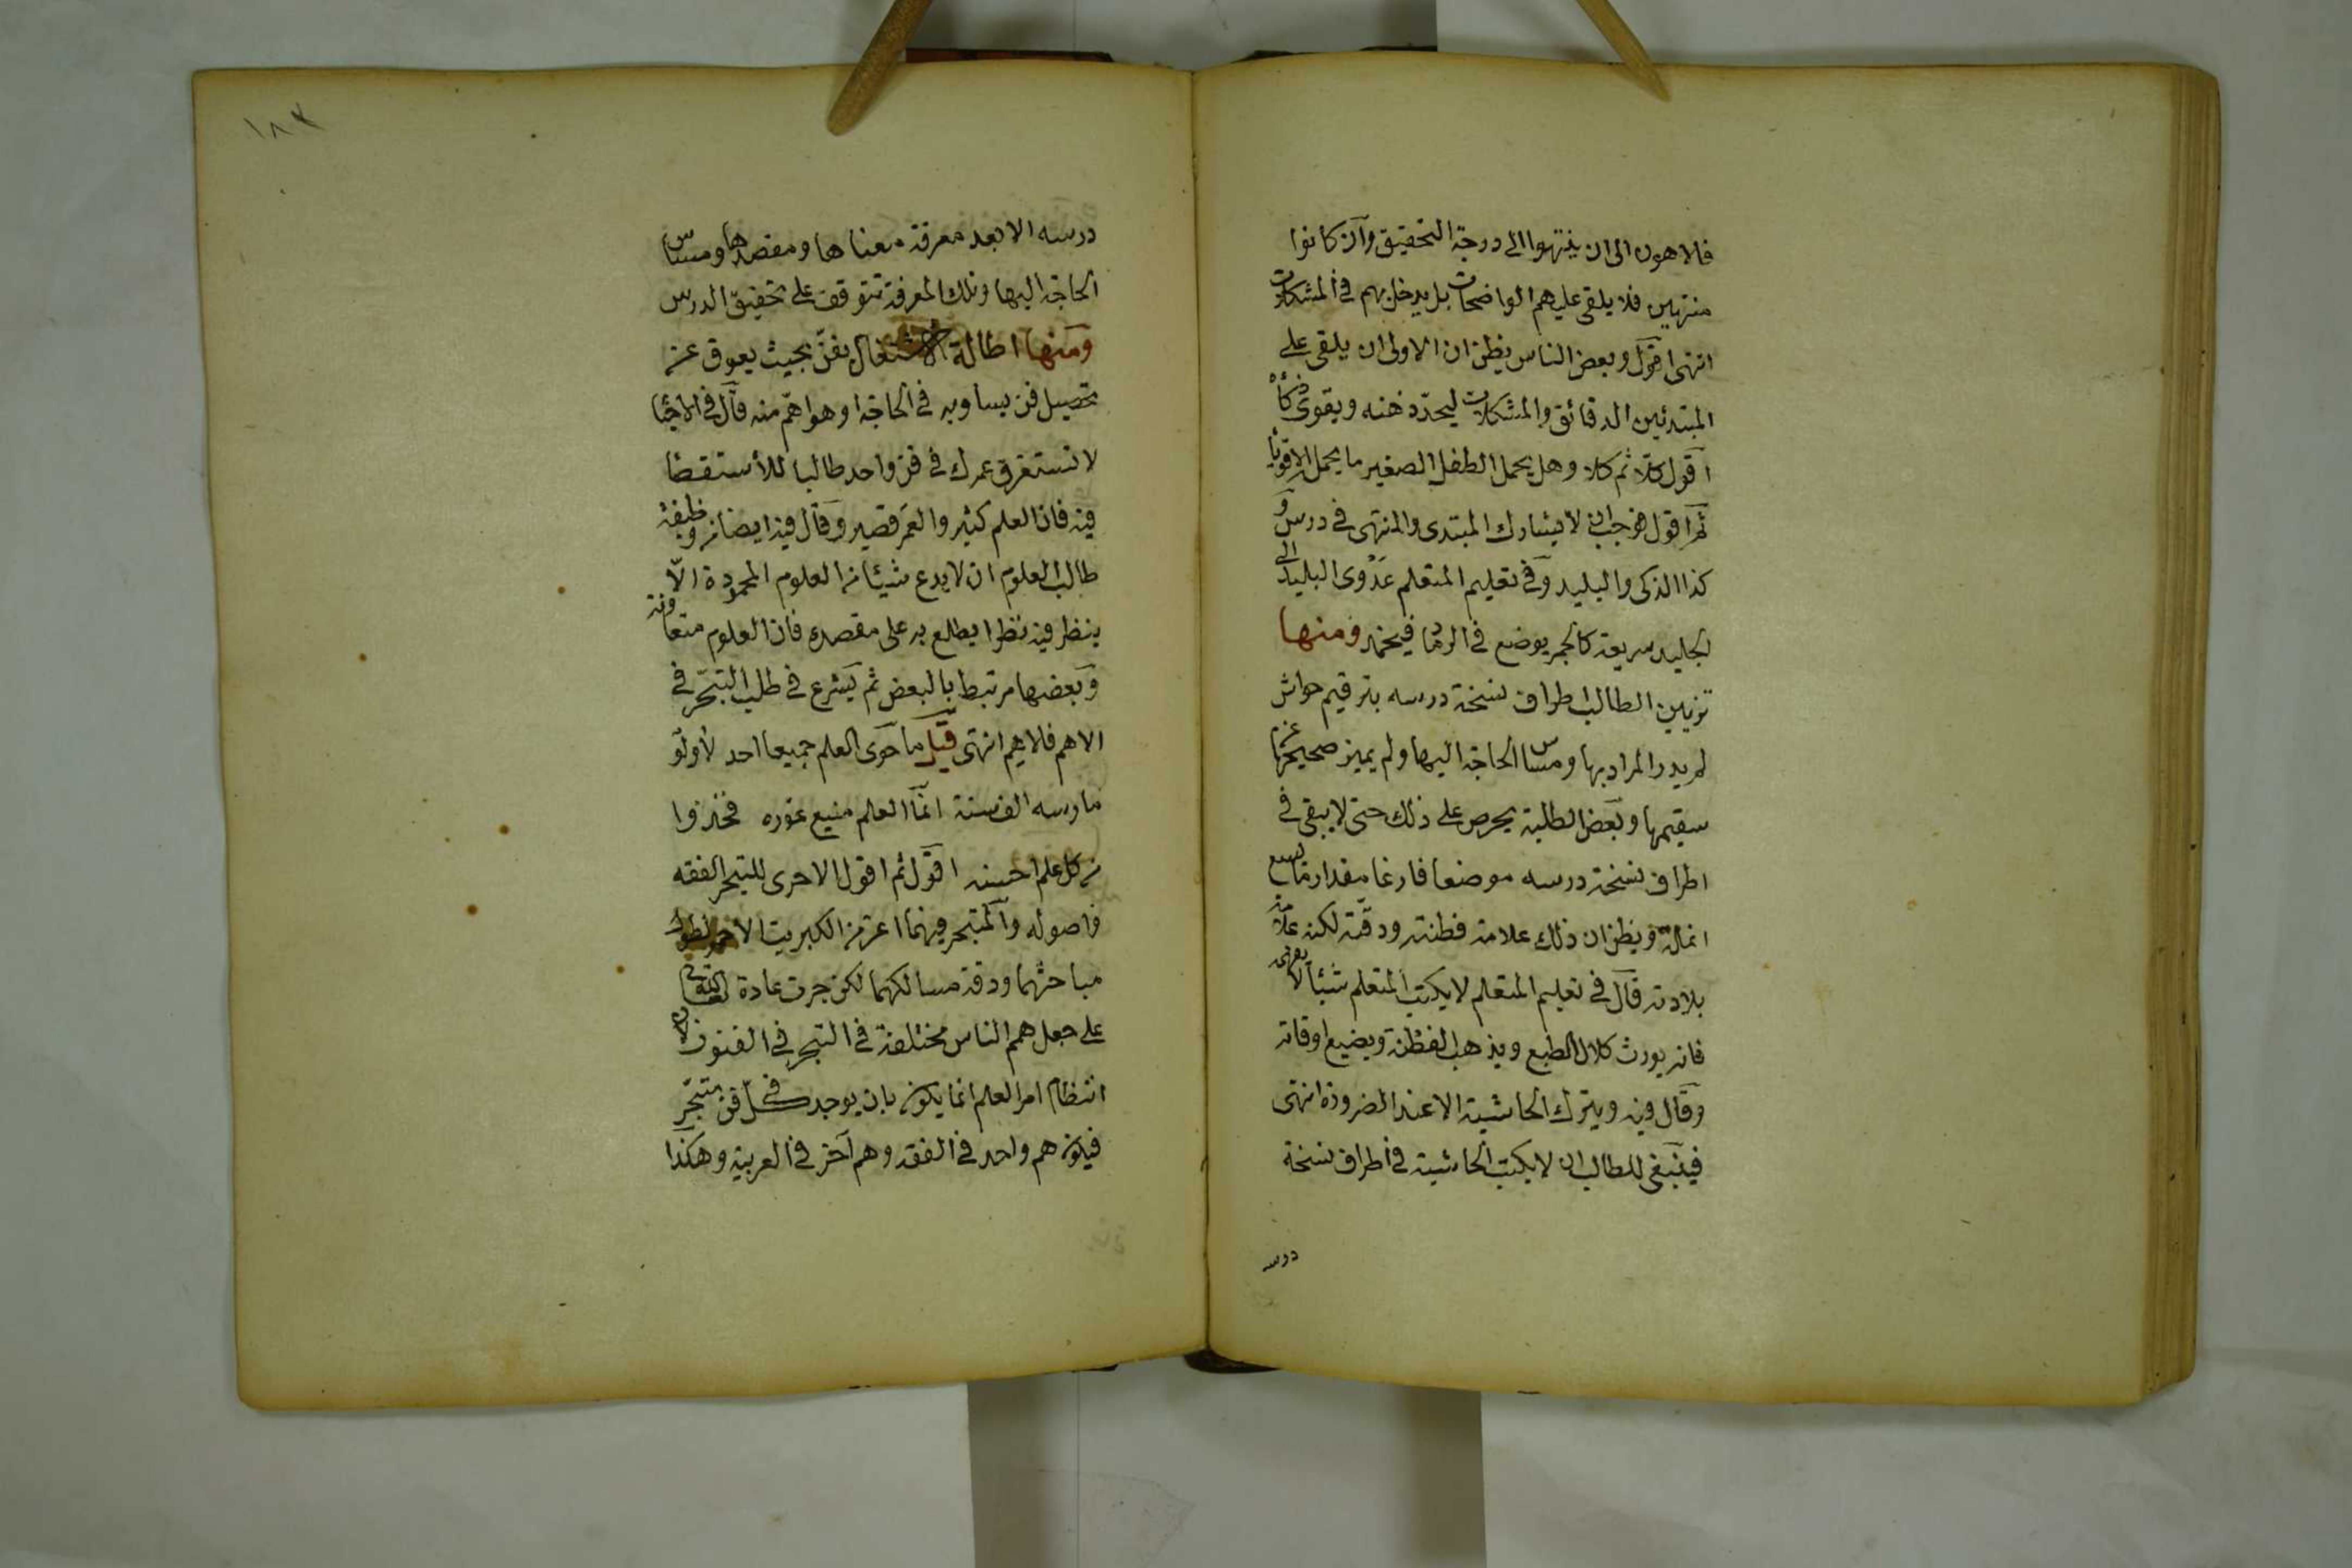 فالاهون الى ان ينتهوا الى درجة التحقيق وان كانوا
منتهين فلا يلقى عليهم الواضحات بل يدخل بهم في المشكلات
انتهى اقول وبعض الناس يظن ان الاولى ان يلقى على
المبتدئين الدقائق والمشكلات ليحدّ ذهنه ويقوى ذكأه
اقول كلا ثم كلا وهل يحمل الطفل الصغير ما يحمل الاقويا
ثم اقول فيجب ان لا يشارك المبتدى والمنتهى في درس و
كذا الذكى والبليد وفي تعليم المتعلم عَدْوى البليد الى
الجليد سريعة كالجمر يوضع في الرماد فيخمد ومنها
تزيين الطالب اطراف نسخة درسه بترقيم حواش
لم يدر المراد بها ومساس الحاجة اليها ولم يميز صحيحها عن
سقيمها وبعض الطلبة يحرص على ذلك حتى لا يبقى في
اطراف نسخة درسه موضعا فارغا مقدار ما تسع
انملة ويظن ان ذلك علامة فطنته ودقته لكنه علامة
بلادته قال في تعليم المتعلم لا يكتب المتعلم شيئا لا يفهمه
فانه يورث كلال الطبع ويذهب الفطنة ويضيع اوقاته
وقال فيه ويترك الحاشية الا عند الضرورة انتهى
فينبغى للطالب ان لا يكتب الحاشية في اطراف نسخة
درسه
١٨٣
درسه الا بعد معرفة معناها ومقصدها ومساس
الحاجة اليها وتلك المعرفة تتوقف على تحقيق الدرس
ومنها اطالة الاشتغال بفنّ بحيث يعوق عن
تحصيل فن يساويه في الحاجة او هو اهمّ منه قال في الاحيا
لا تستغرق عمرك في فن واحد طالبا للأستقصا
فيه فان العلم كثير والعمر قصير وقال فيه ايضا من وظيفة
طالب العلوم ان لا يدع شيئا من العلوم المحمودة الّا
ينظر فيه نظرا يطلع به على مقصده فان العلوم متعاونة
وبعضها مرتبط بالبعض ثم يشرع في طلب التبحّر في
الاهم فلاهم انتهى قيل ما حوى العلم جميعا احد لأولو
مارسه الف سنة انما العلم منيع غوره فخذوا
من كل علم احسنه اقول ثم اقول الاحرى للتبحر الفقه
واصوله والمتبحر فيهما اعز من الكبريت الاحمر لطول
مباحثهما ودقة مسالكهما لكن جرت عادة
على جعل همم الناس مختلفة في التبحر في الفنون لان
انتظام امر العلم انما يكون بان يوجد في كلّ فن متبحّر
فيكون هم واحد في الفقه وهم آخر في العربية وهكذا